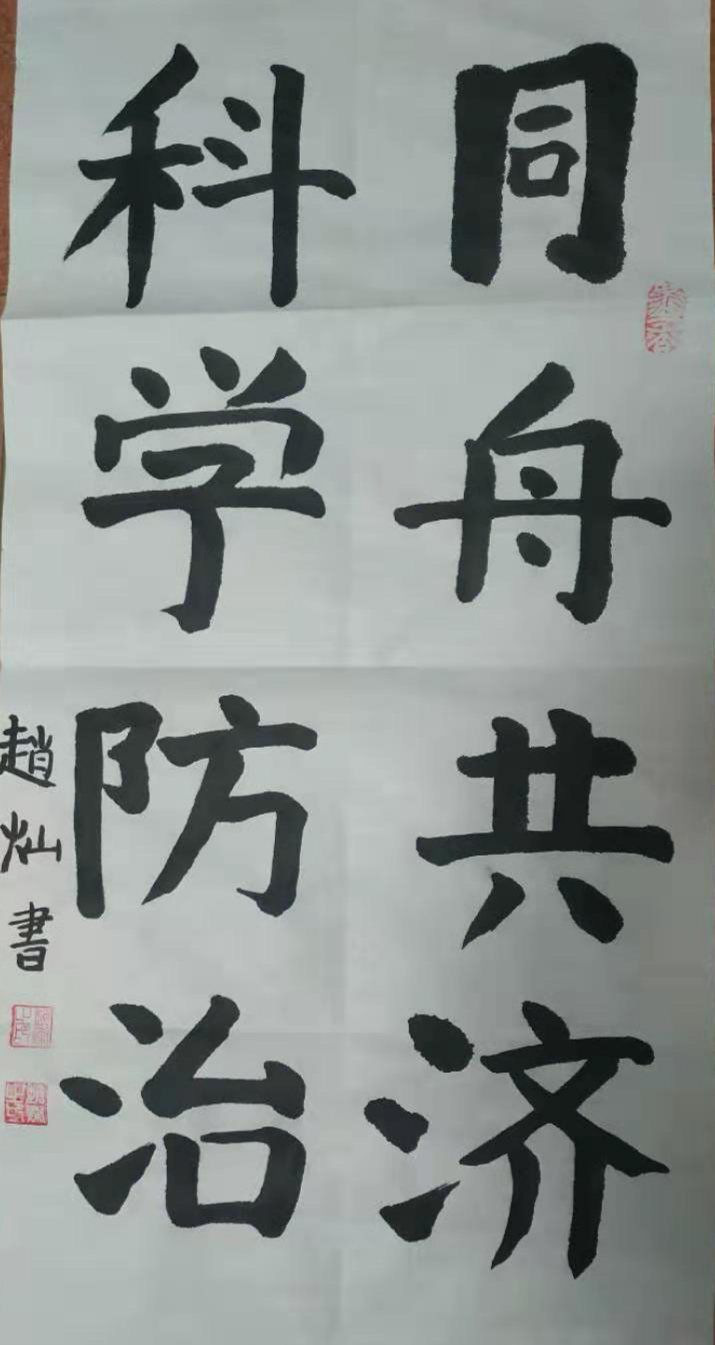 同舟共济
科学防治
趙灿書